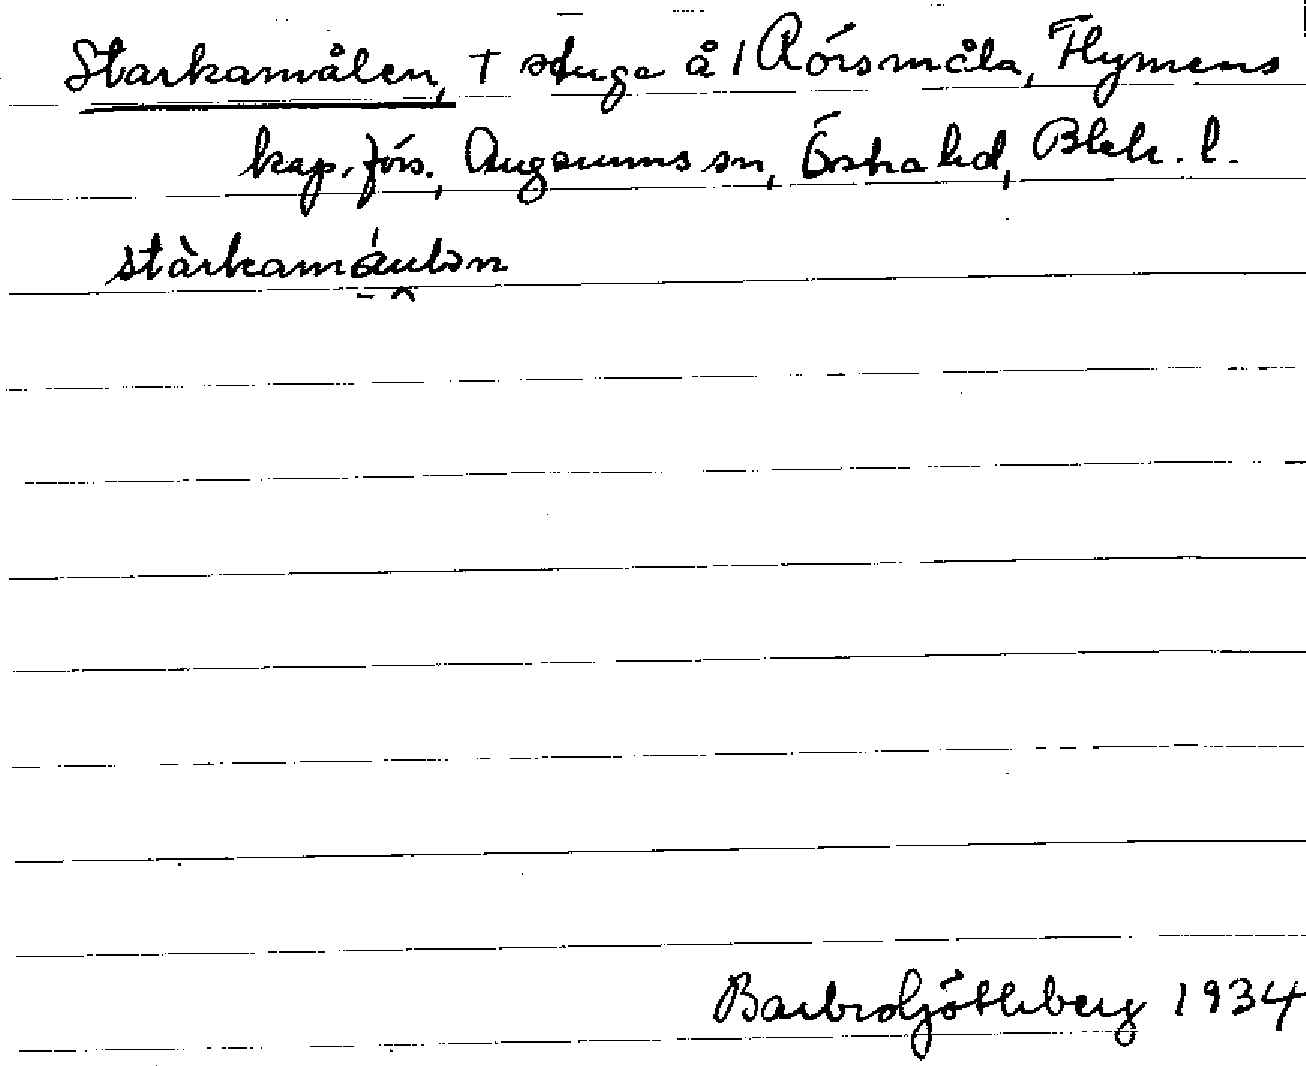 Starkamålen, † stuga å 1 Rörsmåla, Flymens
kap. förs., Augerums sn, Östra hd, Blek. l.
stàrkamáulən
Barbro Göthberg 1934